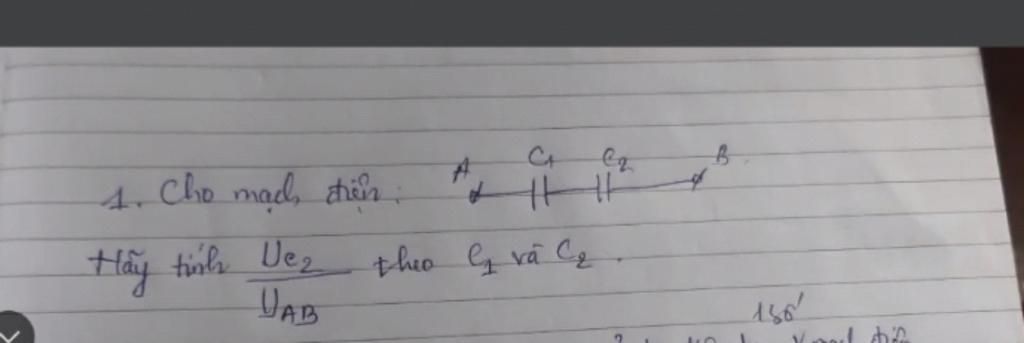 1. Cho mạch điện: A C1 C2 B
Hãy tính UC2 / UAB theo C1 và C2.
156'
mạch điện